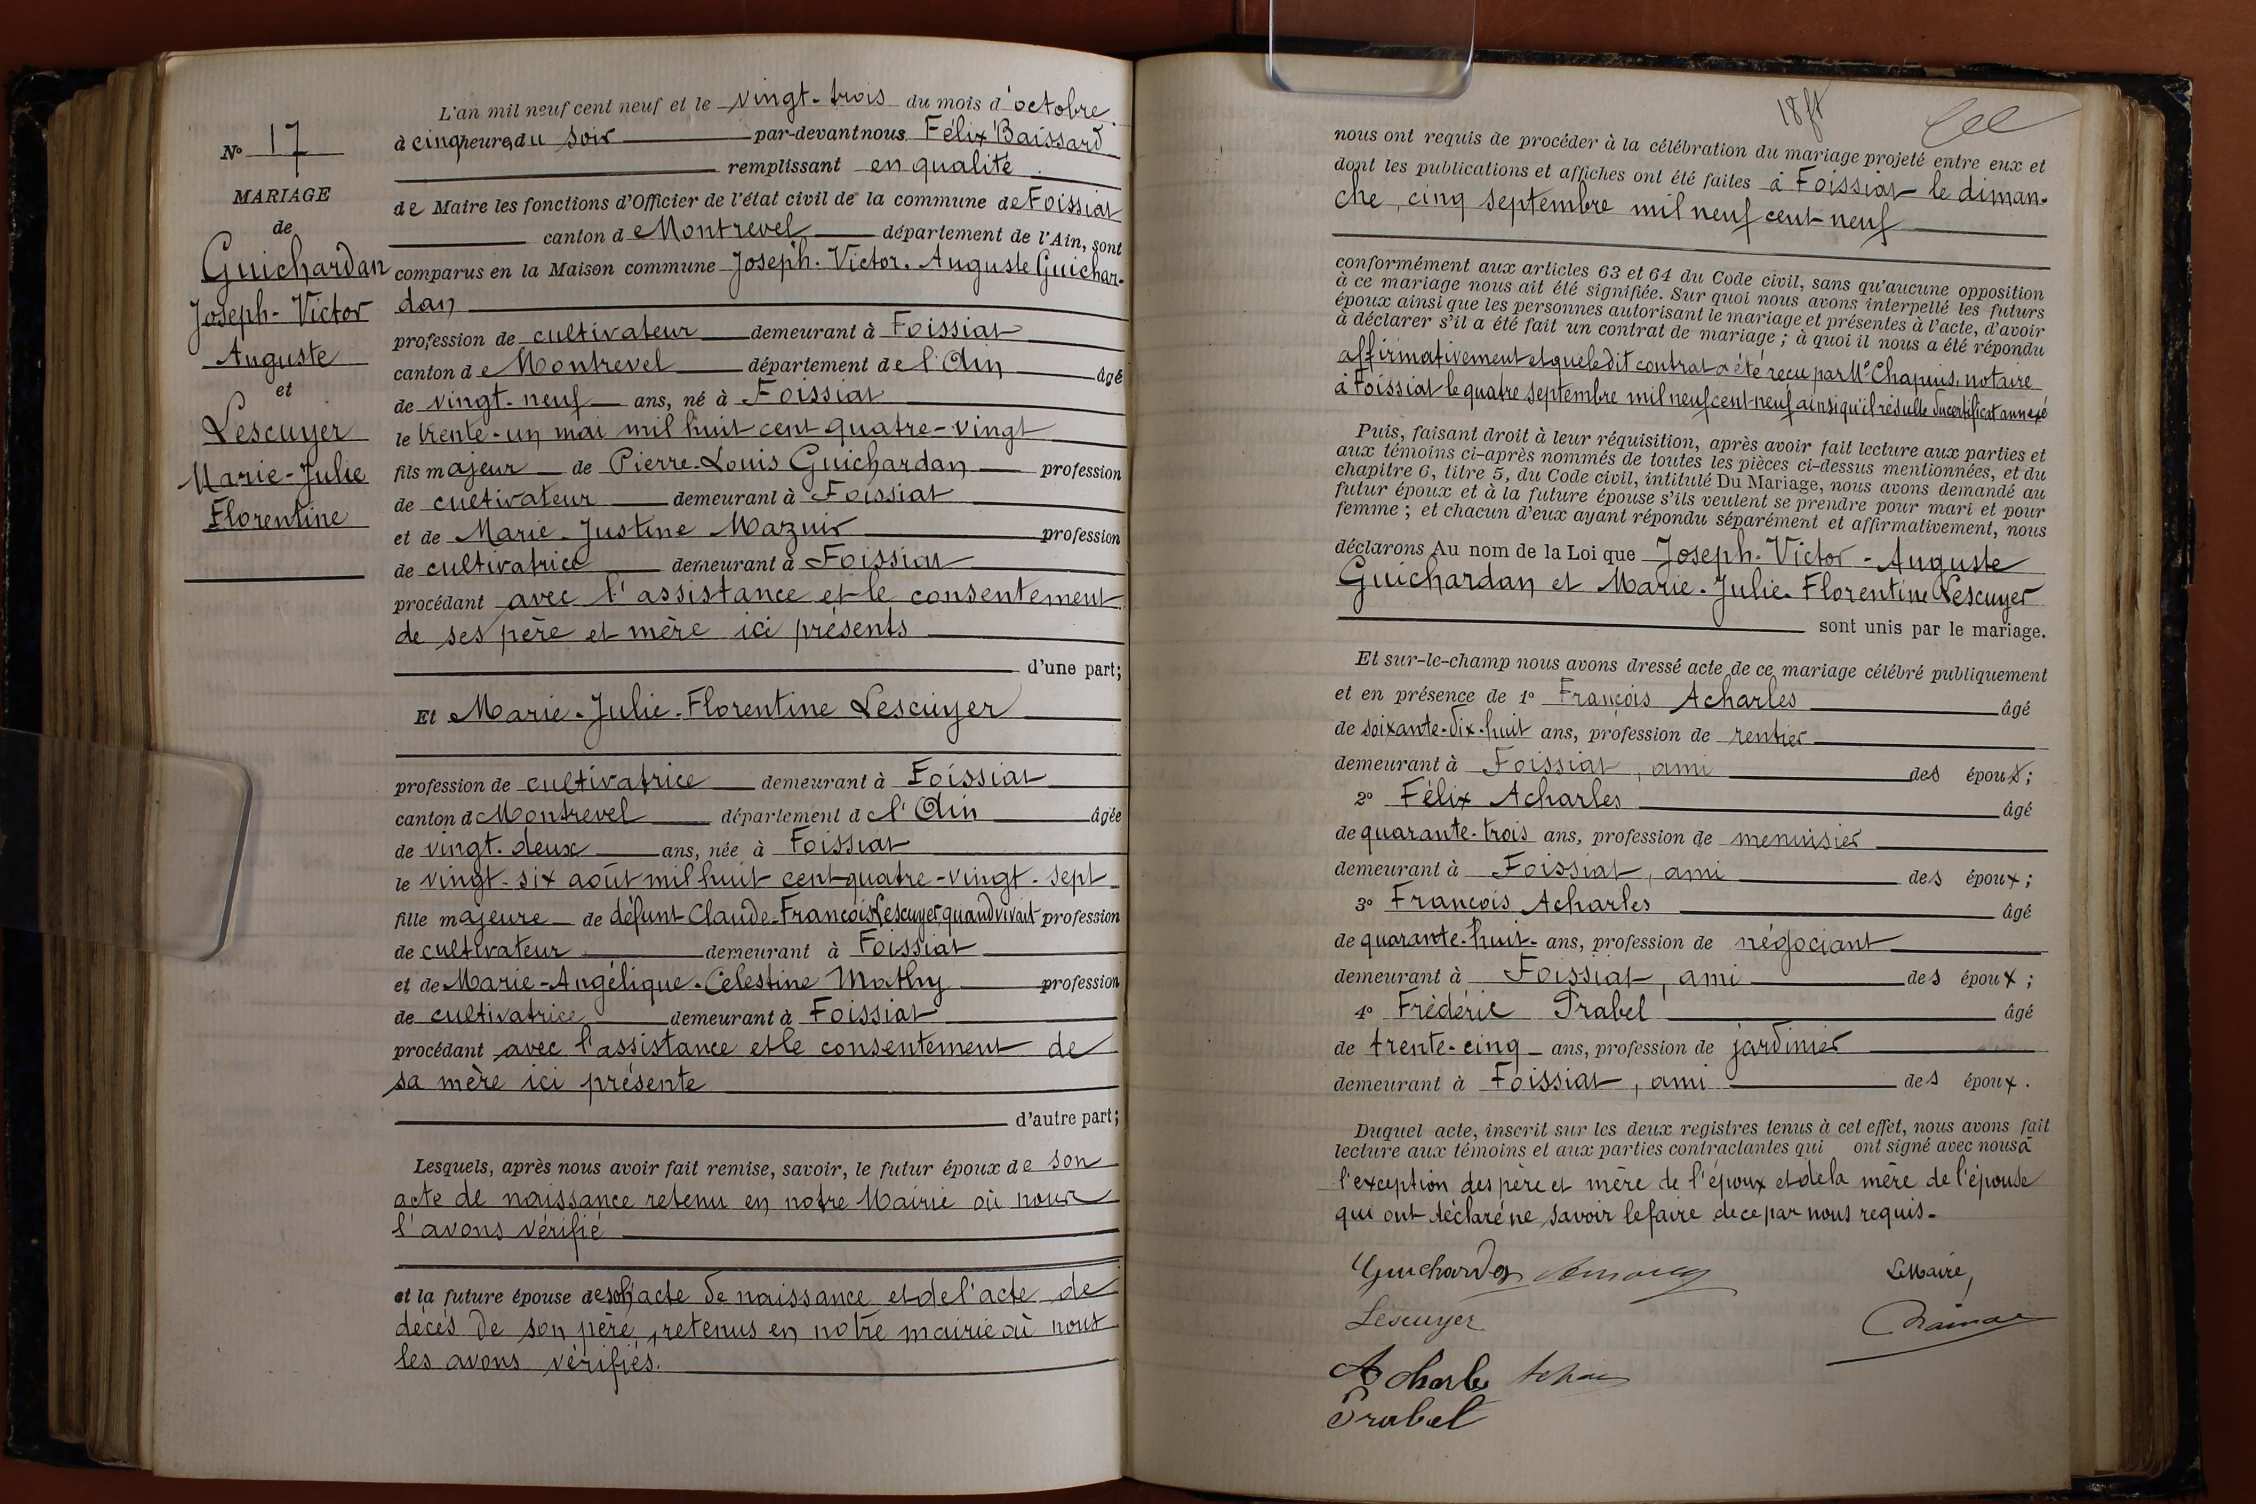 N° 17
MARIAGE
de
Guichardan
Joseph-Victor
Auguste
et
Lescuyer
Marie-Julie
Florentine
L'an mil neuf cent neuf et le vingt-trois du mois d'octobre
à cinq heures du soir par-devant nous Félix Baissard
remplissant en qualité
de Maire les fonctions d'Officier de l'état civil de la commune de Foissiat
canton de Montrevel département de l'Ain, sont
comparus en la Maison commune Joseph-Victor-Auguste Guichar-
dan
profession de cultivateur demeurant à Foissiat
canton de Montrevel département de l'Ain âgé
de vingt-neuf ans, né à Foissiat
le trente-un mai mil huit cent quatre-vingt
fils majeur de Pierre-Louis Guichardan profession
de cultivateur demeurant à Foissiat
et de Marie-Justine Mazuir profession
de cultivatrice demeurant à Foissiat
procédant avec l'assistance et le consentement
de ses père et mère ici présents
d'une part;
Et Marie-Julie-Florentine Lescuyer
profession de cultivatrice demeurant à Foissiat
canton de Montrevel département de l'Ain âgée
de vingt-deux ans, née à Foissiat
le vingt-six août mil huit cent quatre-vingt-sept
fille majeure de défunt Claude-François Lescuyer, quand vivait profession
de cultivateur demeurant à Foissiat
et de Marie-Angélique-Célestine Mathy profession
de cultivatrice demeurant à Foissiat
procédant avec l'assistance et le consentement de
sa mère ici présente
d'autre part;
Lesquels, après nous avoir fait remise, savoir, le futur époux de son
acte de naissance retenu en notre Mairie où nous
l'avons vérifié
et la future épouse de son acte de naissance et de l'acte de
décès de son père, retenus en notre mairie où nous
les avons vérifiés.
nous ont requis de procéder à la célébration du mariage projeté entre eux et
dont les publications et affiches ont été faites à Foissiat le diman-
che, cinq septembre mil neuf cent neuf
conformément aux articles 63 et 64 du Code civil, sans qu'aucune opposition
à ce mariage nous ait été signifiée. Sur quoi nous avons interpellé les futurs
époux ainsi que les personnes autorisant le mariage et présentes à l'acte, d'avoir
à déclarer s'il a été fait un contrat de mariage; à quoi il nous a été répondu
affirmativement et que le dit contrat a été reçu par Me Chapuis, notaire
à Foissiat le quatre septembre mil neuf cent neuf ainsi qu'il résulte du certificat annexé
Puis, faisant droit à leur réquisition, après avoir fait lecture aux parties et
aux témoins ci-après nommés de toutes les pièces ci-dessus mentionnées, et du
chapitre 6, titre 5, du Code civil, intitulé Du Mariage, nous avons demandé au
futur époux et à la future épouse s'ils veulent se prendre pour mari et pour
femme; et chacun d'eux ayant répondu séparément et affirmativement, nous
déclarons Au nom de la Loi que Joseph-Victor-Auguste
Guichardan et Marie-Julie-Florentine Lescuyer
sont unis par le mariage.
Et sur-le-champ nous avons dressé acte de ce mariage célébré publiquement
et en présence de 1° François Acharles âgé
de soixante-dix-huit ans, profession de rentier
demeurant à Foissiat, ami des époux;
2° Félix Acharles âgé
de quarante-trois ans, profession de menuisier
demeurant à Foissiat, ami des époux;
3° François Acharles âgé
de quarante-huit ans, profession de négociant
demeurant à Foissiat, ami des époux;
4° Frédéric Prabel âgé
de trente-cinq ans, profession de jardinier
demeurant à Foissiat, ami des époux.
Duquel acte, inscrit sur les deux registres tenus à cet effet, nous avons fait
lecture aux témoins et aux parties contractantes qui ont signé avec nous à
l'exception des père et mère de l'époux et de la mère de l'épouse
qui ont déclaré ne savoir le faire de ce par nous requis.
Guichardan
Le Maire,
Lescuyer
Acharles
Prabel